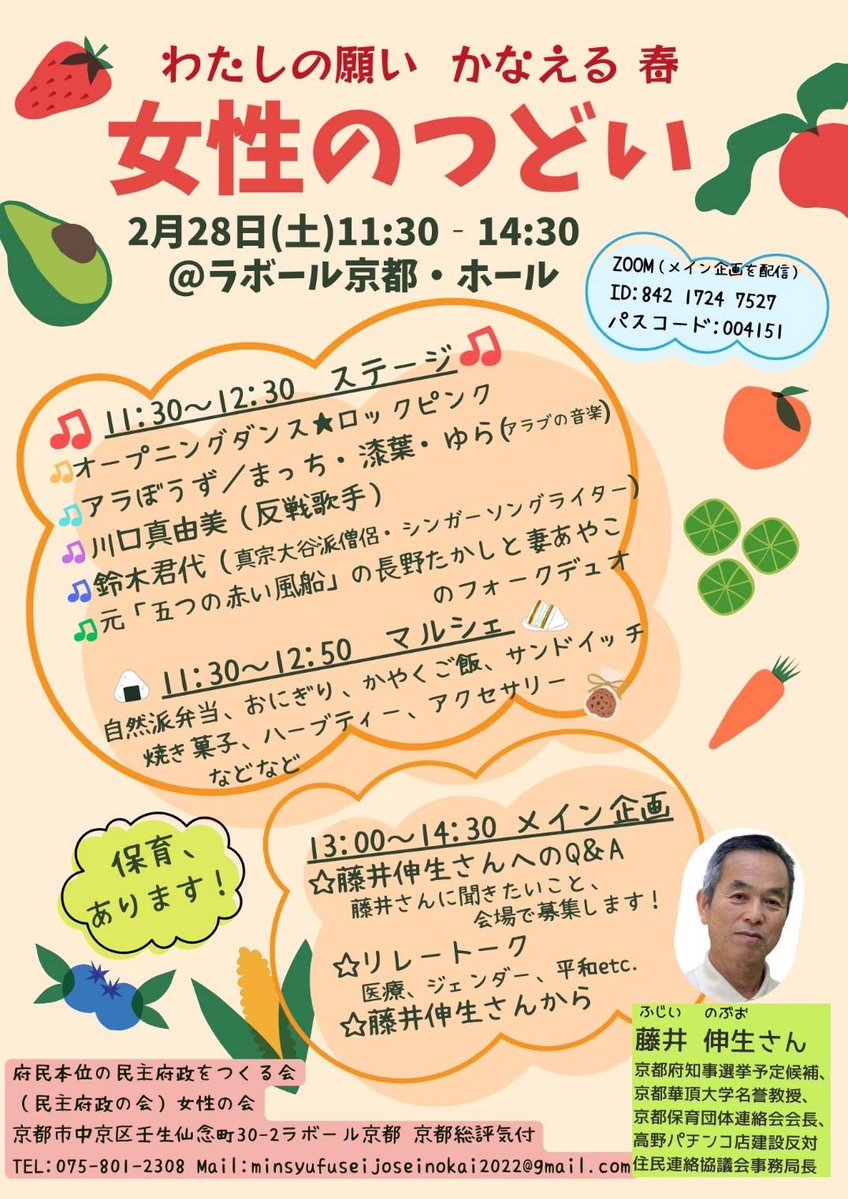 わたしの願い かなえる 春
女性のつどい
2月28日(土)11:30 - 14:30
@ラボール京都・ホール
ZOOM(メイン企画を配信)
ID:842 1724 7527
パスコード:004151
11:30〜12:30 ステージ
オープニングダンス★ロックピンク
アラぼうず/まっち・漆葉・ゆら(アラブの音楽)
川口真由美(反戦歌手)
鈴木君代(真宗大谷派僧侶・シンガーソングライター)
元「五つの赤い風船」の長野たかしと妻あやこ
のフォークデュオ
11:30〜12:50 マルシェ
自然派弁当、おにぎり、かやくご飯、サンドイッチ
焼き菓子、ハーブティー、アクセサリー
などなど
保育、
あります!
13:00〜14:30 メイン企画
☆藤井伸生さんへのQ&A
藤井さんに聞きたいこと、
会場で募集します!
☆リレートーク
医療、ジェンダー、平和etc.
☆藤井伸生さんから
ふじい のぶお
藤井 伸生さん
京都府知事選挙予定候補、
京都華頂大学名誉教授、
京都保育団体連絡会会長、
高野パチンコ店建設反対
住民連絡協議会事務局長
府民本位の民主府政をつくる会
(民主府政の会)女性の会
京都市中京区壬生仙念町30-2ラボール京都 京都総評気付
TEL:075-801-2308 Mail:minsyufuseijoseinokai2022@gmail.com